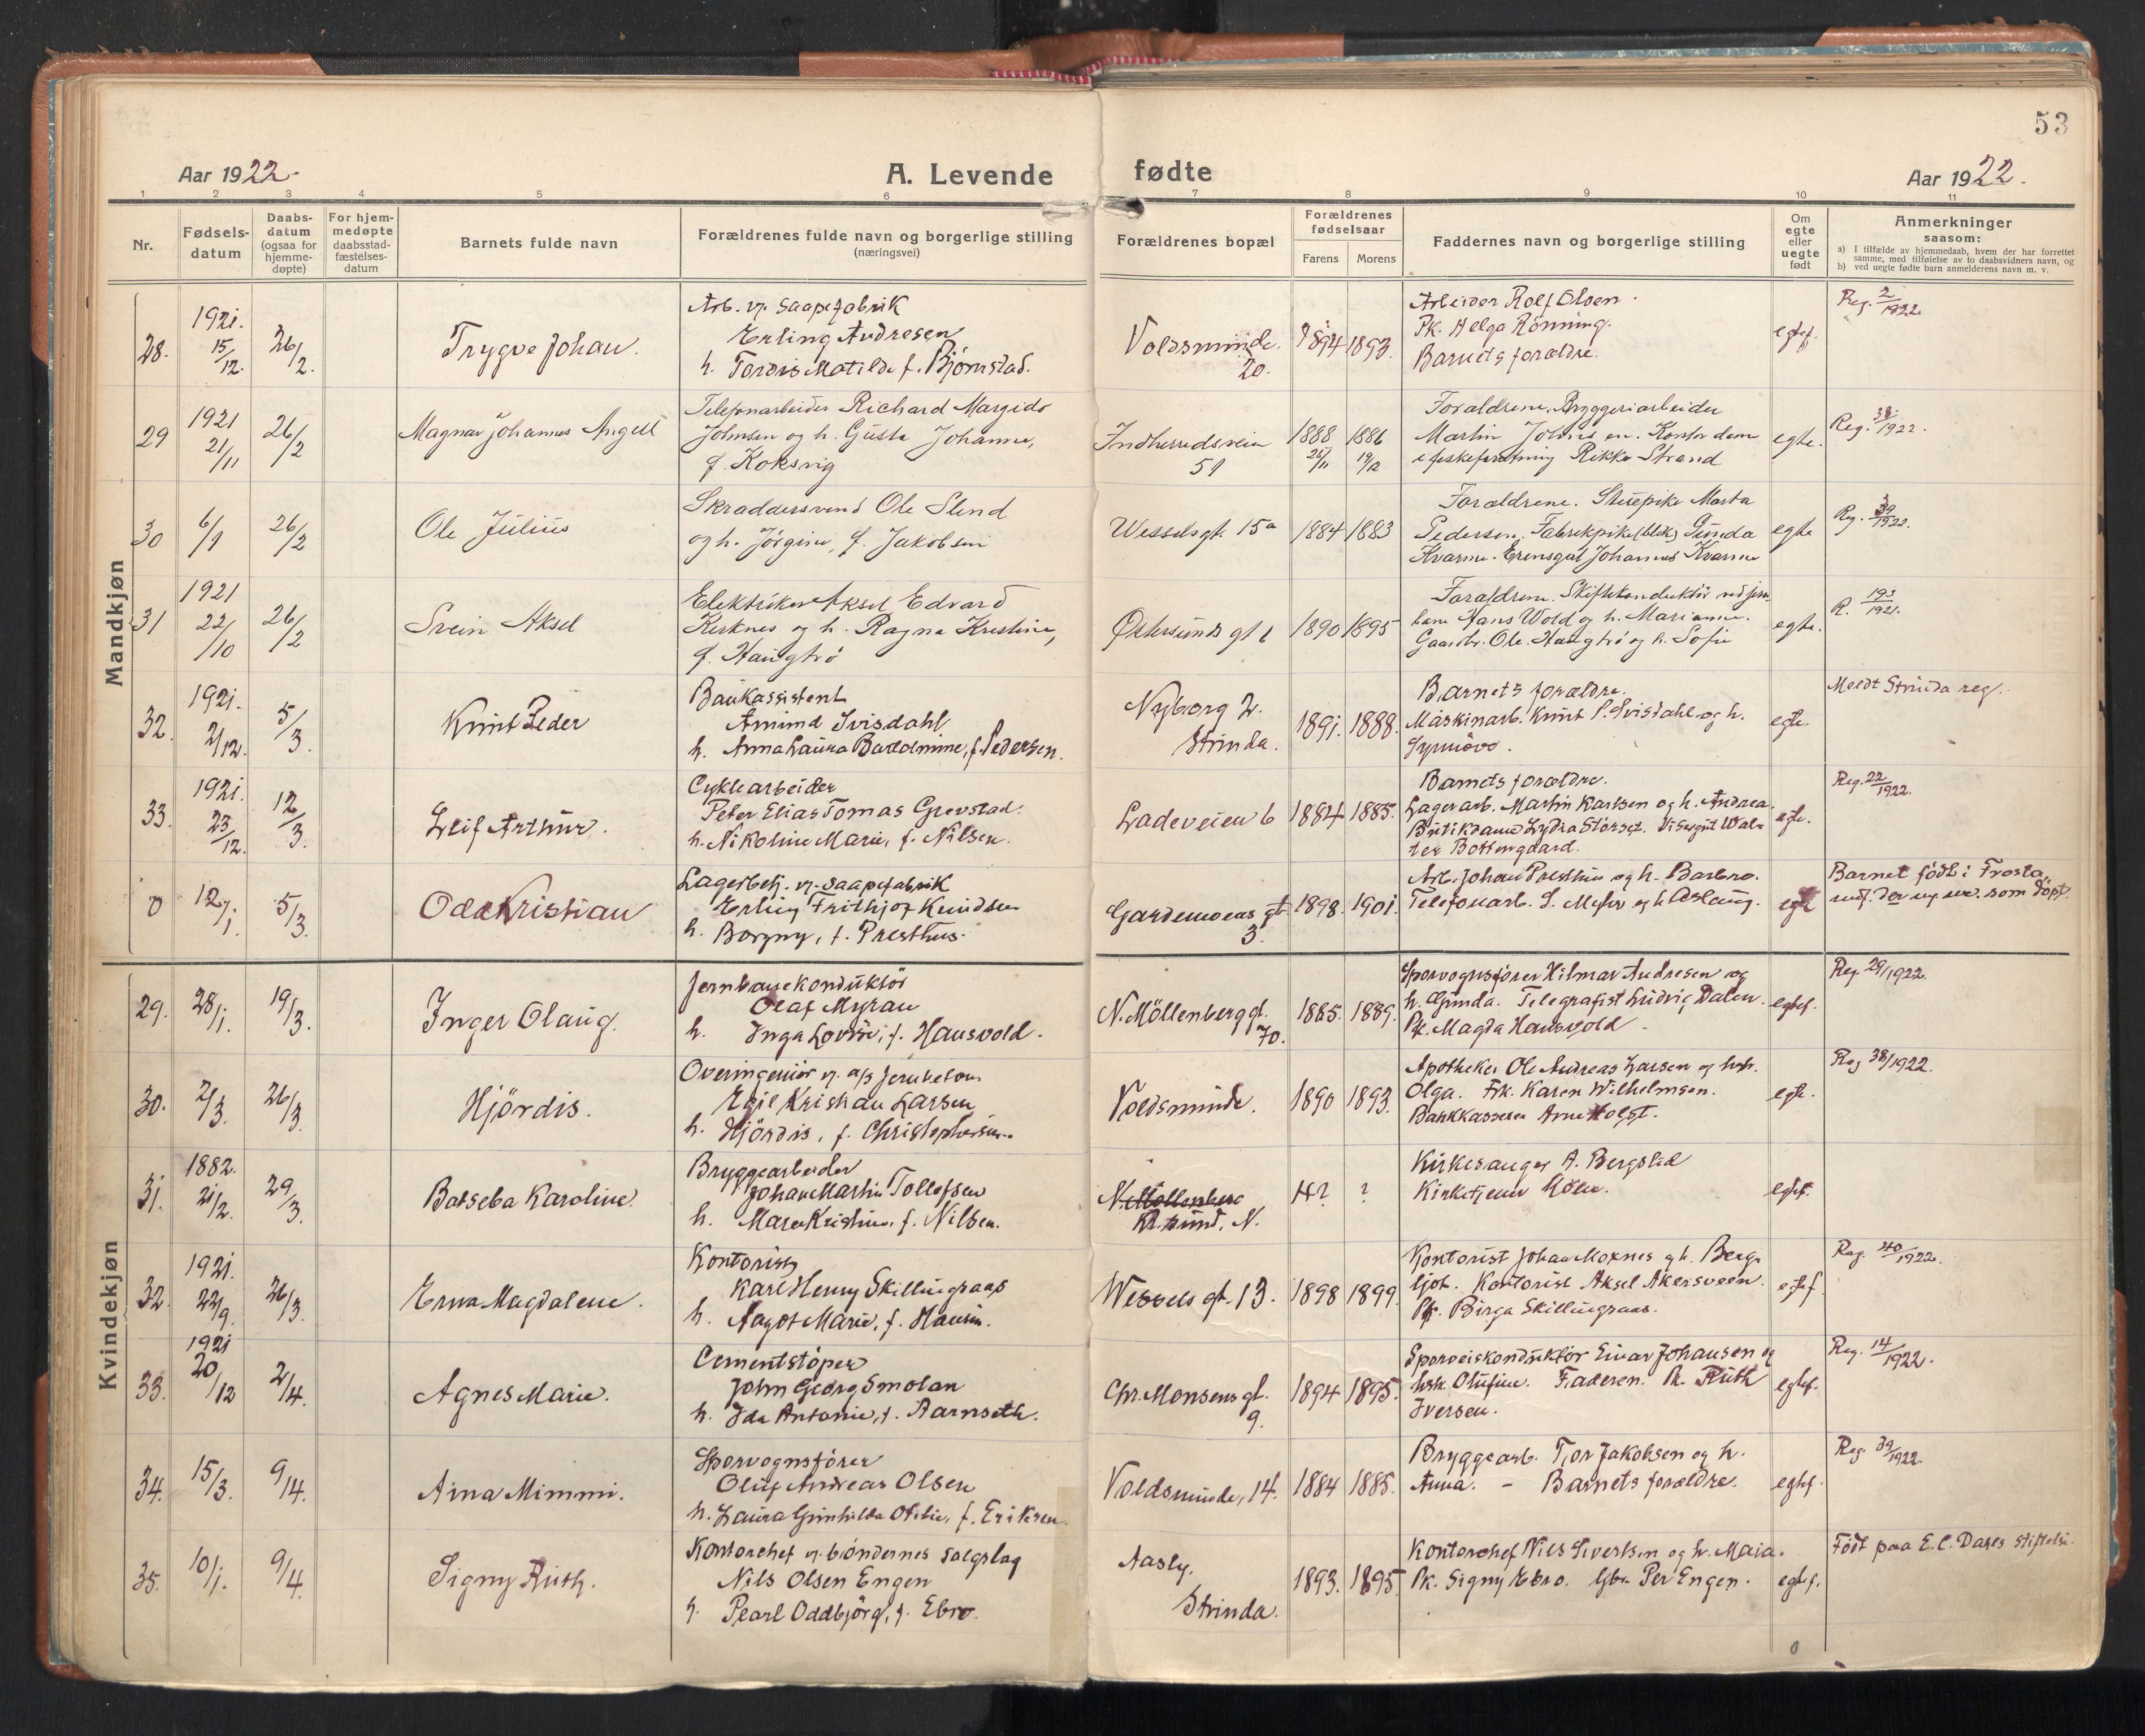 53
Aar 1922.
A. Levende
fødte
Aar 1922.
1 2 3 4 5 6 7 8 9 10 11
Nr.
Fødsels-
datum
Daabs-
datum
(ogsaa for
hjemme-
døpte)
For hjem-
medøpte
daabsstad-
fæstelses-
datum
Barnets fulde navn
Forældrenes fulde navn og borgerlige stilling
(næringsvei)
Forældrenes bopæl
Forældrenes
fødselsaar
Farens Morens
Faddernes navn og borgerlige stilling
Om
egte
eller
uegte
født
Anmerkninger
saasom:
a) I tilfælde av hjemmedaab, hvem der har forrettet
samme, med tilføielse av to daabsvidners navn, og
b) ved uegte fødte barn anmelderens navn m. v.
Mandkjøn
28. 1921. 15/12. 26/2. Trygve Johan.
Arb. v. saapefabrik
Erling Andresen
h. Tordis Matilde f. Bjørnstad.
Voldsminde. 20.
1894 1893.
Arbeider Rolf Olsen.
Pk. Helga Rönning.
Barnets forældre.
egtef.
Reg. 2/1922.
29 1921 21/11 26/2 Magnar Johannes Angell
Telefonarbeider Richard Margido
Johnsen og h. Gusta Johanne,
f. Koksvig
Indherredsveien 51
1888 25/11 1886 19/12
Forældrene. Bryggeriarbeider
Martin Johnsen. Kontordame
i fiskeforretning Rikke Strand
egte.
Reg. 38/1922.
30 6/1 26/2 Ole Julius
Skræddersvend Ole Slend
og h. Jörgine, f. Jakobsen
Wesselsgt. 15a
1884 1883
Forældrene. Stuepike Marta
Pedersen. Fabrikpike (blik) Gunda
Kvarme. Johannes Kvarme
egte
Reg. 39/1922.
31 1921 22/10 26/2 Svein Aksel
Elektriker Aksel Edvard
Kirknes og h. Ragna Kristine,
f. Haugtrö
Østersunds gt 1
1890 1895
Forældrene. Skiftekonduktör ved jern-
bane Hans Wold og h. Marianne.
Gaardbr. Ole Haugtrö og h. Sofie
egte.
R. 193/1921.
32. 1921. 2/12. 5/3. Knut Peder
Bankassistent
Amund Svisdahl
h. Anna Laura Bardomine, f. Pedersen.
Nyborg 2. Strinda.
1891. 1888.
Barnets forældre.
Maskinarb. Knut P. Svisdahl og h.
Synnöve.
egte.
Meldt Strinda reg.
33. 1921. 23/12. 12/3. Leif Arthur.
Cyklearbeider
Peter Elias Tomas Grevstad.
h. Nikoline Marie, f. Nilsen.
Ladeveien 6
1884 1885.
Barnets forældre.
Lagerarb. Martin Karlsen og h. Andrea.
Butikdame Lydia Störset. Visergut Wal-
ter Bottengaard.
egte.
Reg. 22/1922.
0 12/1. 5/3. Odd Kristian
Lagerbetj. v. saapefabrik
Erling Frithjof Knudsen
h. Borgny, f. Presthus.
Gardemoens gt 3.
1898. 1901.
Arb. Johan Presthus og h. Barbro.
Telefonarb. S. Myhr og h. Aslaug.
egte
Barnet födt i Frosta,
indf. der og nr. som döpt.
Kvindekjøn
29. 28/1. 19/3. Inger Olaug.
Jernbanekonduktör
Olaf Myran
h. Inga Lovise, f. Hausvold.
N. Möllenberg gt. 70.
1885. 1889.
Sporvognsförer Hilmar Andresen og
h. Gunda. Telegrafist Ludvig Dalen.
Pk. Magda Hausvold.
egtef.
Reg. 29/1922.
30. 2/3. 26/3. Hjördis.
Overingeniör v. a/s Jernbeton
Egil Kristian Larsen
h. Hjördis, f. Christophersen.
Voldsminde.
1890 1893.
Apotheker Ole Andreas Larsen og hstr.
Olga. Frk. Karen Wilhelmsen.
Bankkasserer Arne Holst.
egte.
Reg 38/1922.
31. 1882. 21/2. 29/3. Batseba Karoline.
Bryggearbeider
Johan Martin Tollefsen
h. Maren Kristine, f. Nilsen.
N. Möllenberg
Kr.sund. N.
? ?
Kirkesanger A. Bergslid
Kirketjener Holm.
egtef.
32. 1921. 22/9. 26/3. Erna Magdalene.
Kontorist
Karl Henry Skillingsaas
h. Aagot Marie, f. Hansen.
Wessels gt. 13.
1898 1899.
Kontorist Johan Moxnes og h. Berg-
ljot. Kontorist Aksel Akersveen.
Pk. Birga Skillingsaas.
egtef
Reg. 40/1922.
33. 1921 20/12 2/4. Agnes Marie.
Cementstöper
John Georg Smolan
h. Ida Antonie, f. Aarnseth.
Chr. Monsens gt. 9.
1894 1895.
Sporveiskonduktör Einar Johansen og
hstr. Olufine. Faderen. Pk. Ruth
Iversen.
egtef.
Reg. 14/1922.
34. 15/3. 9/4. Aina Mimmi.
Sporvognsförer
Oluf Andreas Olsen
h. Laura Gunhilda Otilie, f. Eriksen.
Voldsminde, 14.
1884 1885.
Bryggearb. Tor Jakobsen og h.
Anna. - Barnets forældre.
egtef.
Reg. 39/1922.
35. 10/1. 9/4. Signy Ruth.
Kontorchef v. böndernes salgslag
Nils Olsen Engen
h. Pearl Oddbjörg, f. Ebro.
Aasly. Strinda.
1893. 1895
Kontorchef Nils Sivertsen og h. Maia.
Pk. Signy Ebro. Gbr. Per Engen.
egtef.
Födt paa E. C. Dahls stiftelse.
0